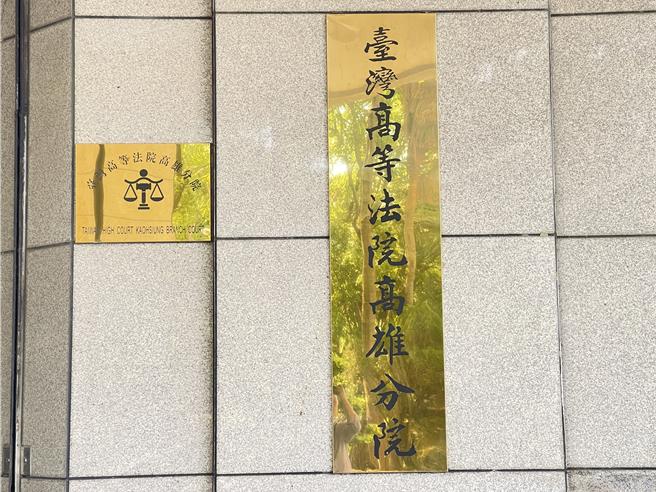 臺灣高等法院高雄分院
臺灣高等法院高雄分院
TAIWAN HIGH COURT KAOHSIUNG BRANCH COURT